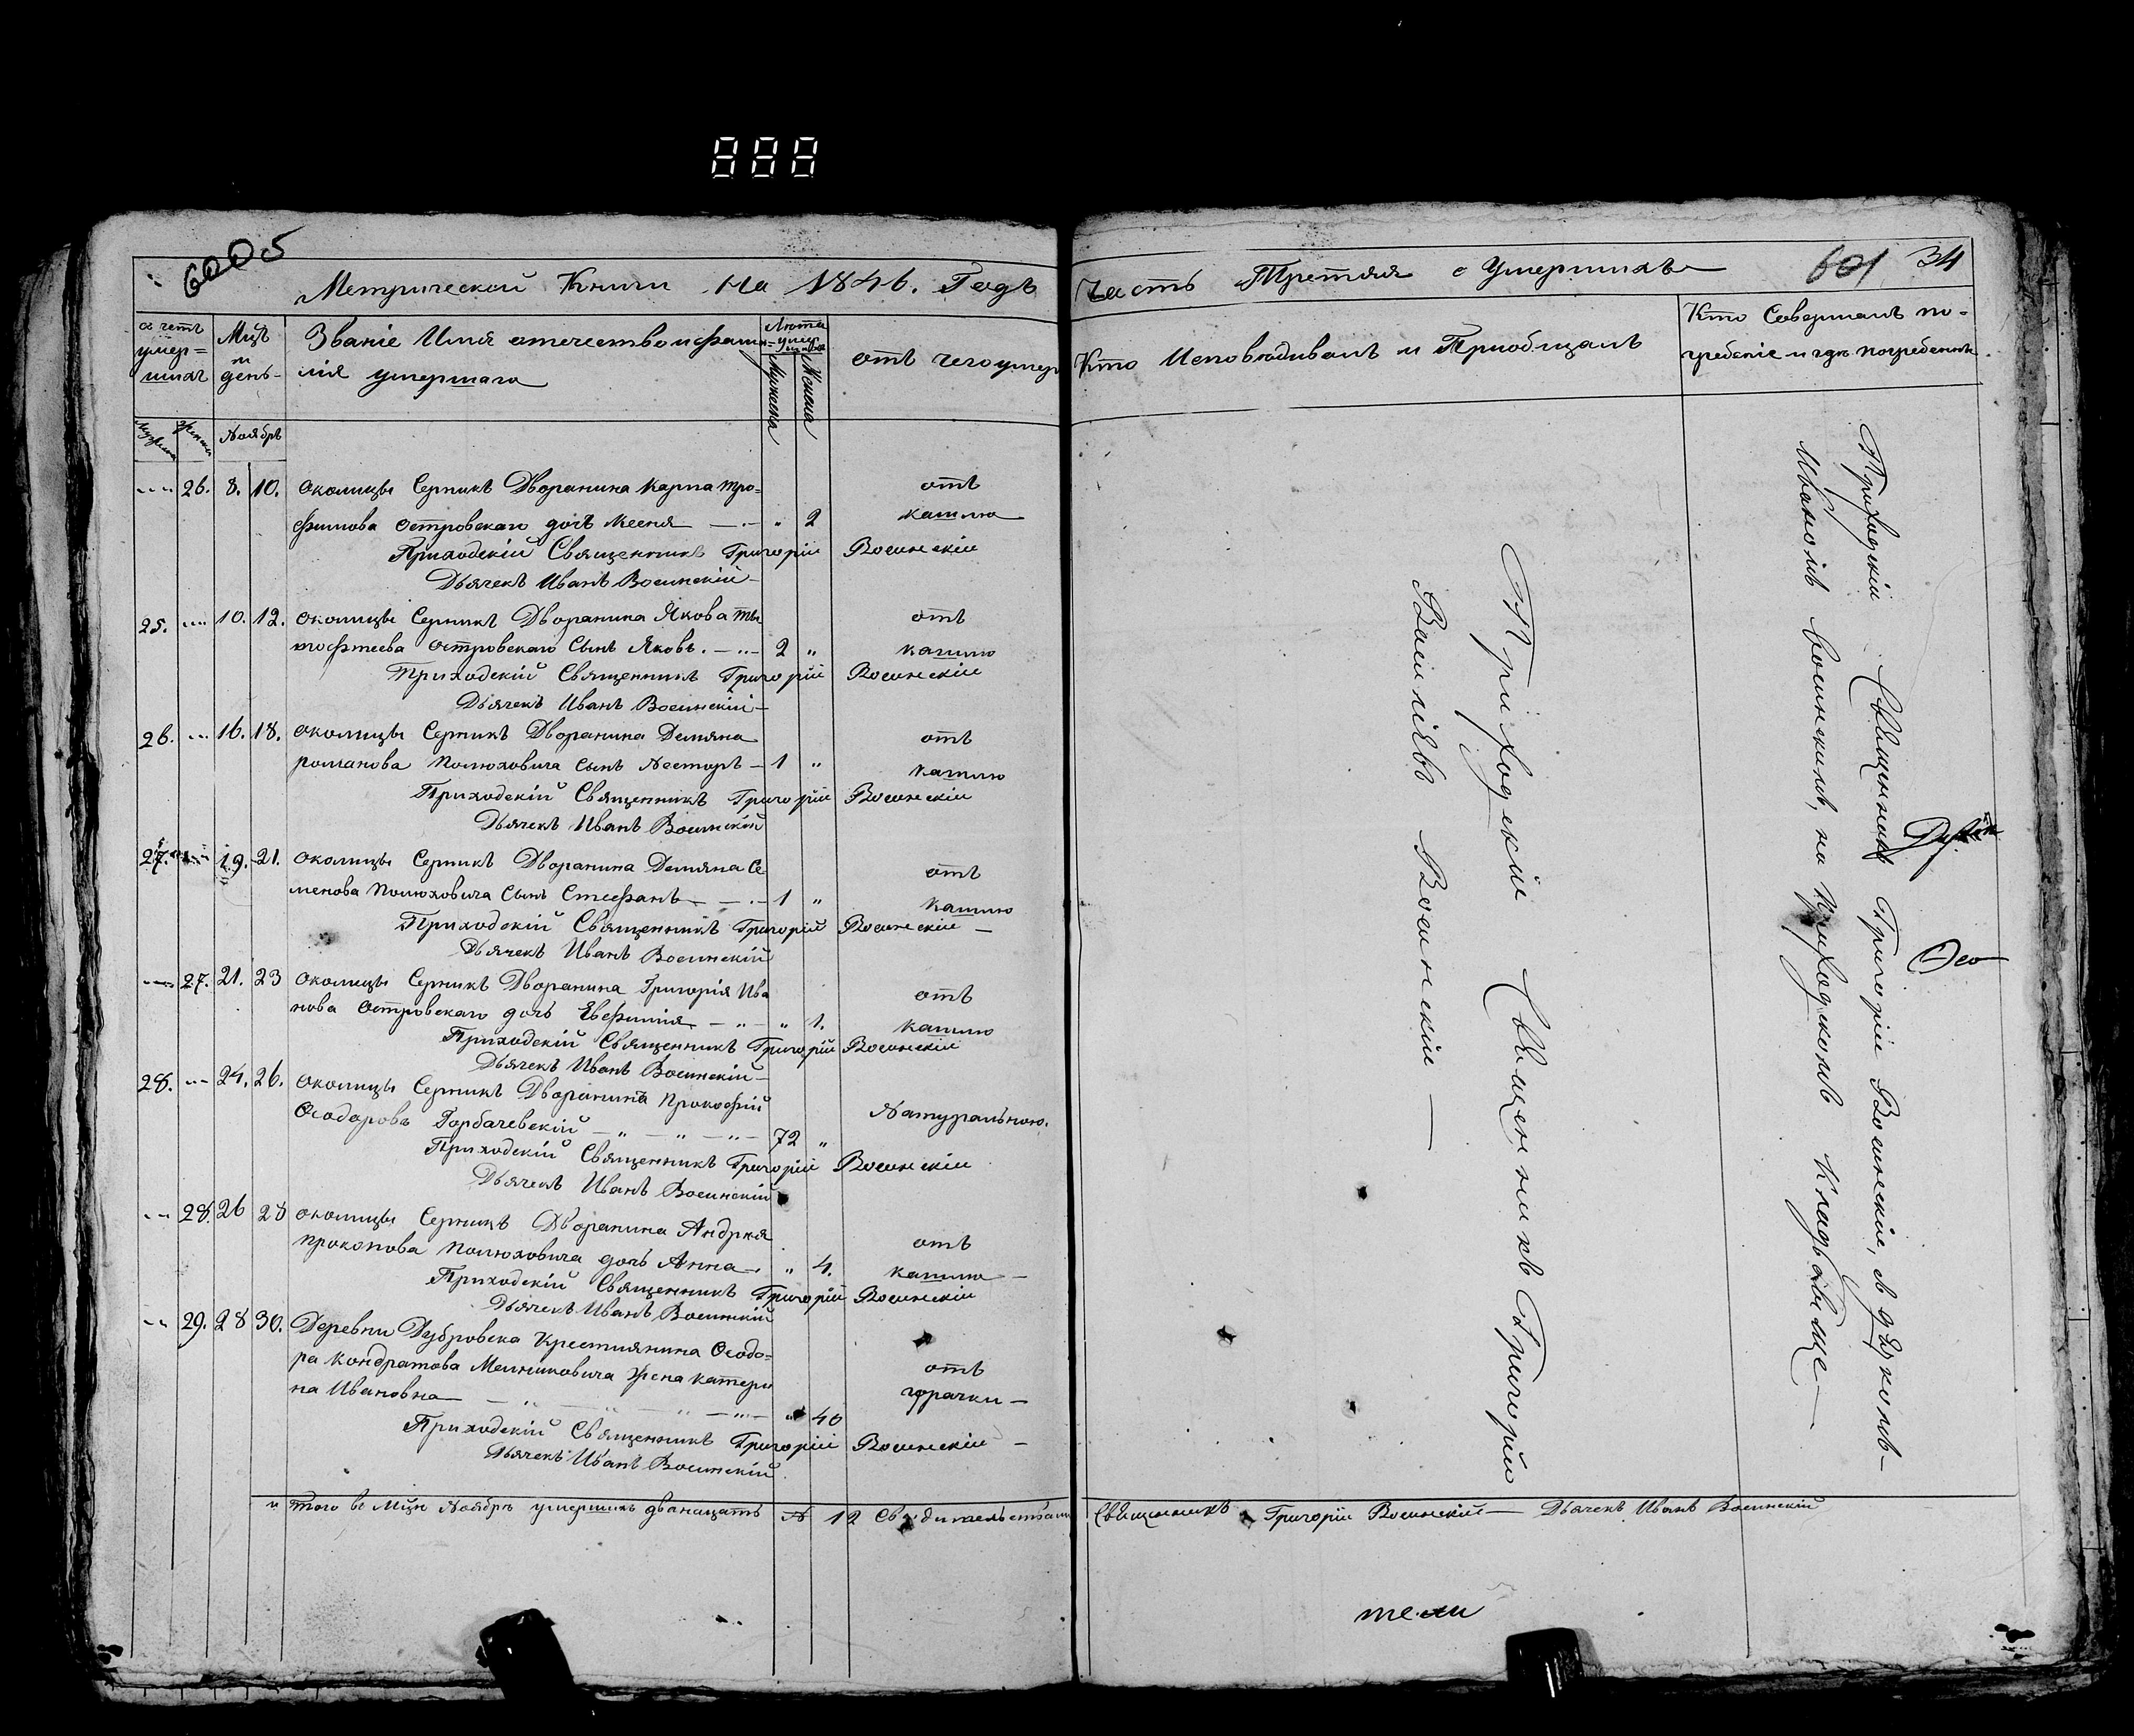 6005
Метрической Книги На 1846. Годъ
Часть Третяя о Умершихъ
601 34
счетъ умер=шихъ
Мцъ и день
Званіе Имя отечество и фами=
лія умершаго
Лѣта умершихъ
Мужеска
Женска
отъ чего умер
Кто Исповѣдивалъ и Пріобщалъ
Кто Совершалъ по=
гребеніе и гдѣ погребенны
Ноябрь
26. 8. 10. околицы Серникъ Дворянина Карпа Тро=
отъ
фимова Островскаго дочь Ксеня 2
кашлю
Приходскій Священникъ Григорій Восинскій
Дьячекъ Иванъ Восинскій
25. 10. 12. околицы Серникъ Дворянина Якова Ти
отъ
мофтеева Островскаго Сынъ Яковъ. 2 „
кашлю
Приходскій Священникъ Григорій Восинскій
Дьячекъ Иванъ Восинскій
26. 16. 18. околицы Серникъ Дворянина Демяна
отъ
романова Полюховича Сынъ Несторъ 1 „
кашлю
Приходскій Священникъ Григорій Восинскій
Дьячекъ Иванъ Восинскій
27. 19. 21. околицы Серникъ Дворянина Демяна Се
отъ
менова Полюховича Сынъ Стефанъ 1 „
кашлю
Приходскій Священникъ Григорій Восинскій
Дьячекъ Иванъ Восинскій
27. 21. 23 околицы Серникъ Дворянина Григорія Ива
отъ
нова Островскаго дочь Евфимія „ 1.
кашлю
Приходскій Священникъ Григорій Восинскій
Дьячекъ Иванъ Восинскій
28. 24. 26. околицы Серникъ Дворянина Прокофій
Натуральною.
Ѳеодоровъ Горбачевскій 72 „
Приходскій Священникъ Григорій Восинскій
Дьячекъ Иванъ Восинскій
28. 26 28 околицы Серникъ Дворянина Андрея
отъ
прокопова Полюховича дочь Анна „ 4.
кашлю
Приходскій Священникъ Григорій Восинскій
Дьячекъ Иванъ Восинскій
29. 28 30. Деревни Дубровска Крестиянина Ѳеодо=
ра Кондратова Мелниковича жена Катери
отъ
на Ивановна „ 40
горачки
Приходскій Священникъ Григорій Восинскій
Дьячекъ Иванъ Восинскій
и того въ Мцѣ Ноябрѣ умершихъ дванацать № 12
Священникъ Григорій Восинскій Дьячекъ Иванъ Восинскій
Приходскій Священникъ Григорій
Василіевъ Восинскій
Приходскій Священникъ Григорій Восинскій, съ дячкомъ
Иваномъ Восинскимъ, на Приходскомъ Кладбовище
тели